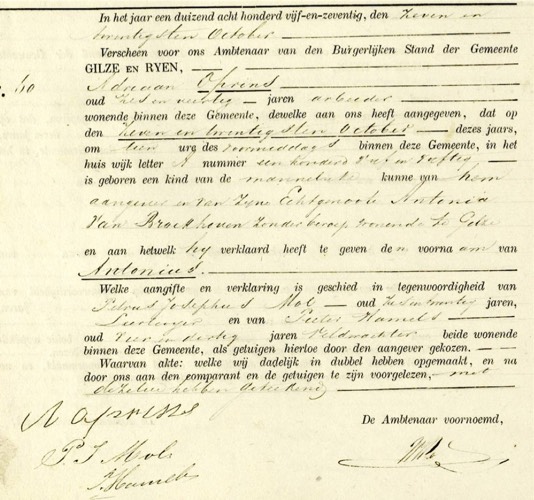 In het jaar een duizend acht honderd vijf-en-zeventig, den zeven en
twentigsten October
Verscheen voor ons Ambtenaar van den Burgerlijken Stand der Gemeente
GILZE EN RYEN,
Adriaan Oprins
oud zes en veertig jaren arbeider
wonende binnen deze Gemeente, dewelke aan ons heeft aangegeven, dat op
den zeven en twentigsten October dezes jaars,
om tien ure des voormiddags binnen deze Gemeente, in het
huis wijk letter A nummer een honderd vijf en vijftig
is geboren een kind van de mannelijke kunne van hem
aangever en van zijne Echtgenoote Antonia
Van Broekhoven zonder beroep wonende te Gilze
en aan hetwelk hy verklaard heeft te geven den voornaam van
Antonius.
Welke aangifte en verklaring is geschied in tegenwoordigheid van
Petrus Josephus Mol oud zes en twintig jaren,
en van Pieter Hamels
oud vier en dertig jaren veldwachter beide wonende
binnen deze Gemeente, als getuigen hierloe door den aangever gekozen.
Waarvan akte: welke wij dadelijk in dubbel hebben opgemaakt, en na
door ons aan den comparant en de getuigen te zijn voorgelezen, met
dezelve hebben geteekend
A oprins
De Ambtenaar voornoemd,
P. J Mol
P Hamels